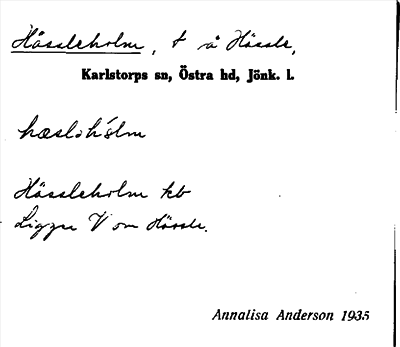 Hässleholm, t å Hässle,
Karlstorps sn, Östra hd, Jönk. l.
hæslɔhólm
Hässleholm kb
Ligger V om Hässle.
Annalisa Anderson 1935